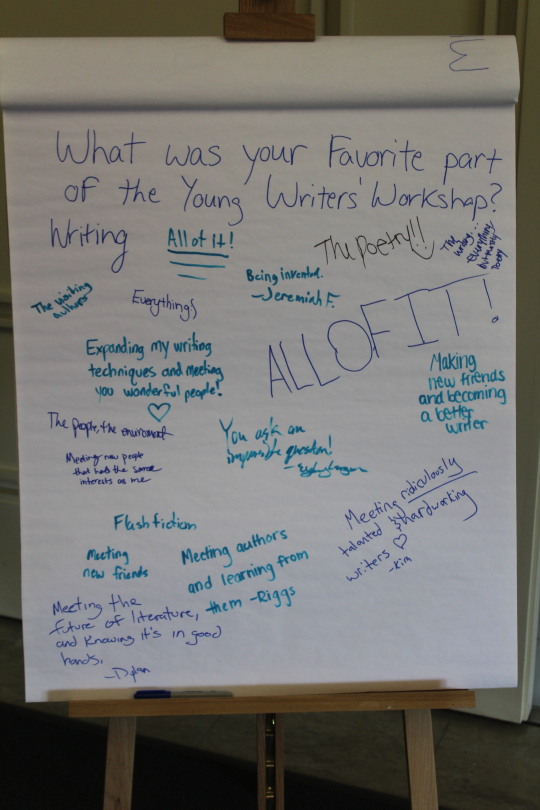 What was your Favorite part
of the Young Writers' Workshop?
Writing
All of It!
The Poetry!!
The
writing...
Everything
but mainly
Poetry
Being inventive.
-Jeremiah F.
The visiting
authors
Everything
ALL OF IT!
Expanding my writing
techniques and meeting
you wonderful people!
Making
new friends
and becoming
a better
writer
The people, the enviroment
Meeting new people
that had the same
interests as me
You ask an
impossible question!
Meeting ridiculously
talented & hardworking
writers ♡
-Kia
Flash fiction
Meeting
new friends
Meeting authors
and learning from
them -Riggs
Meeting the
future of literature,
and knowing it's in good
hands.
-Dylan